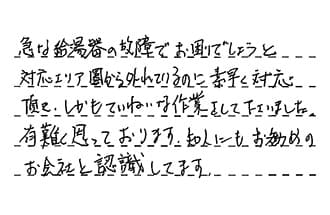 急な給湯器の故障でお困りでしょうと
対応エリア圏から外れているのに素早く対応
頂き、しかもていねいな作業をして下さいました。
有難く思っております。知人にもお勧めの
お会社と認識してます。